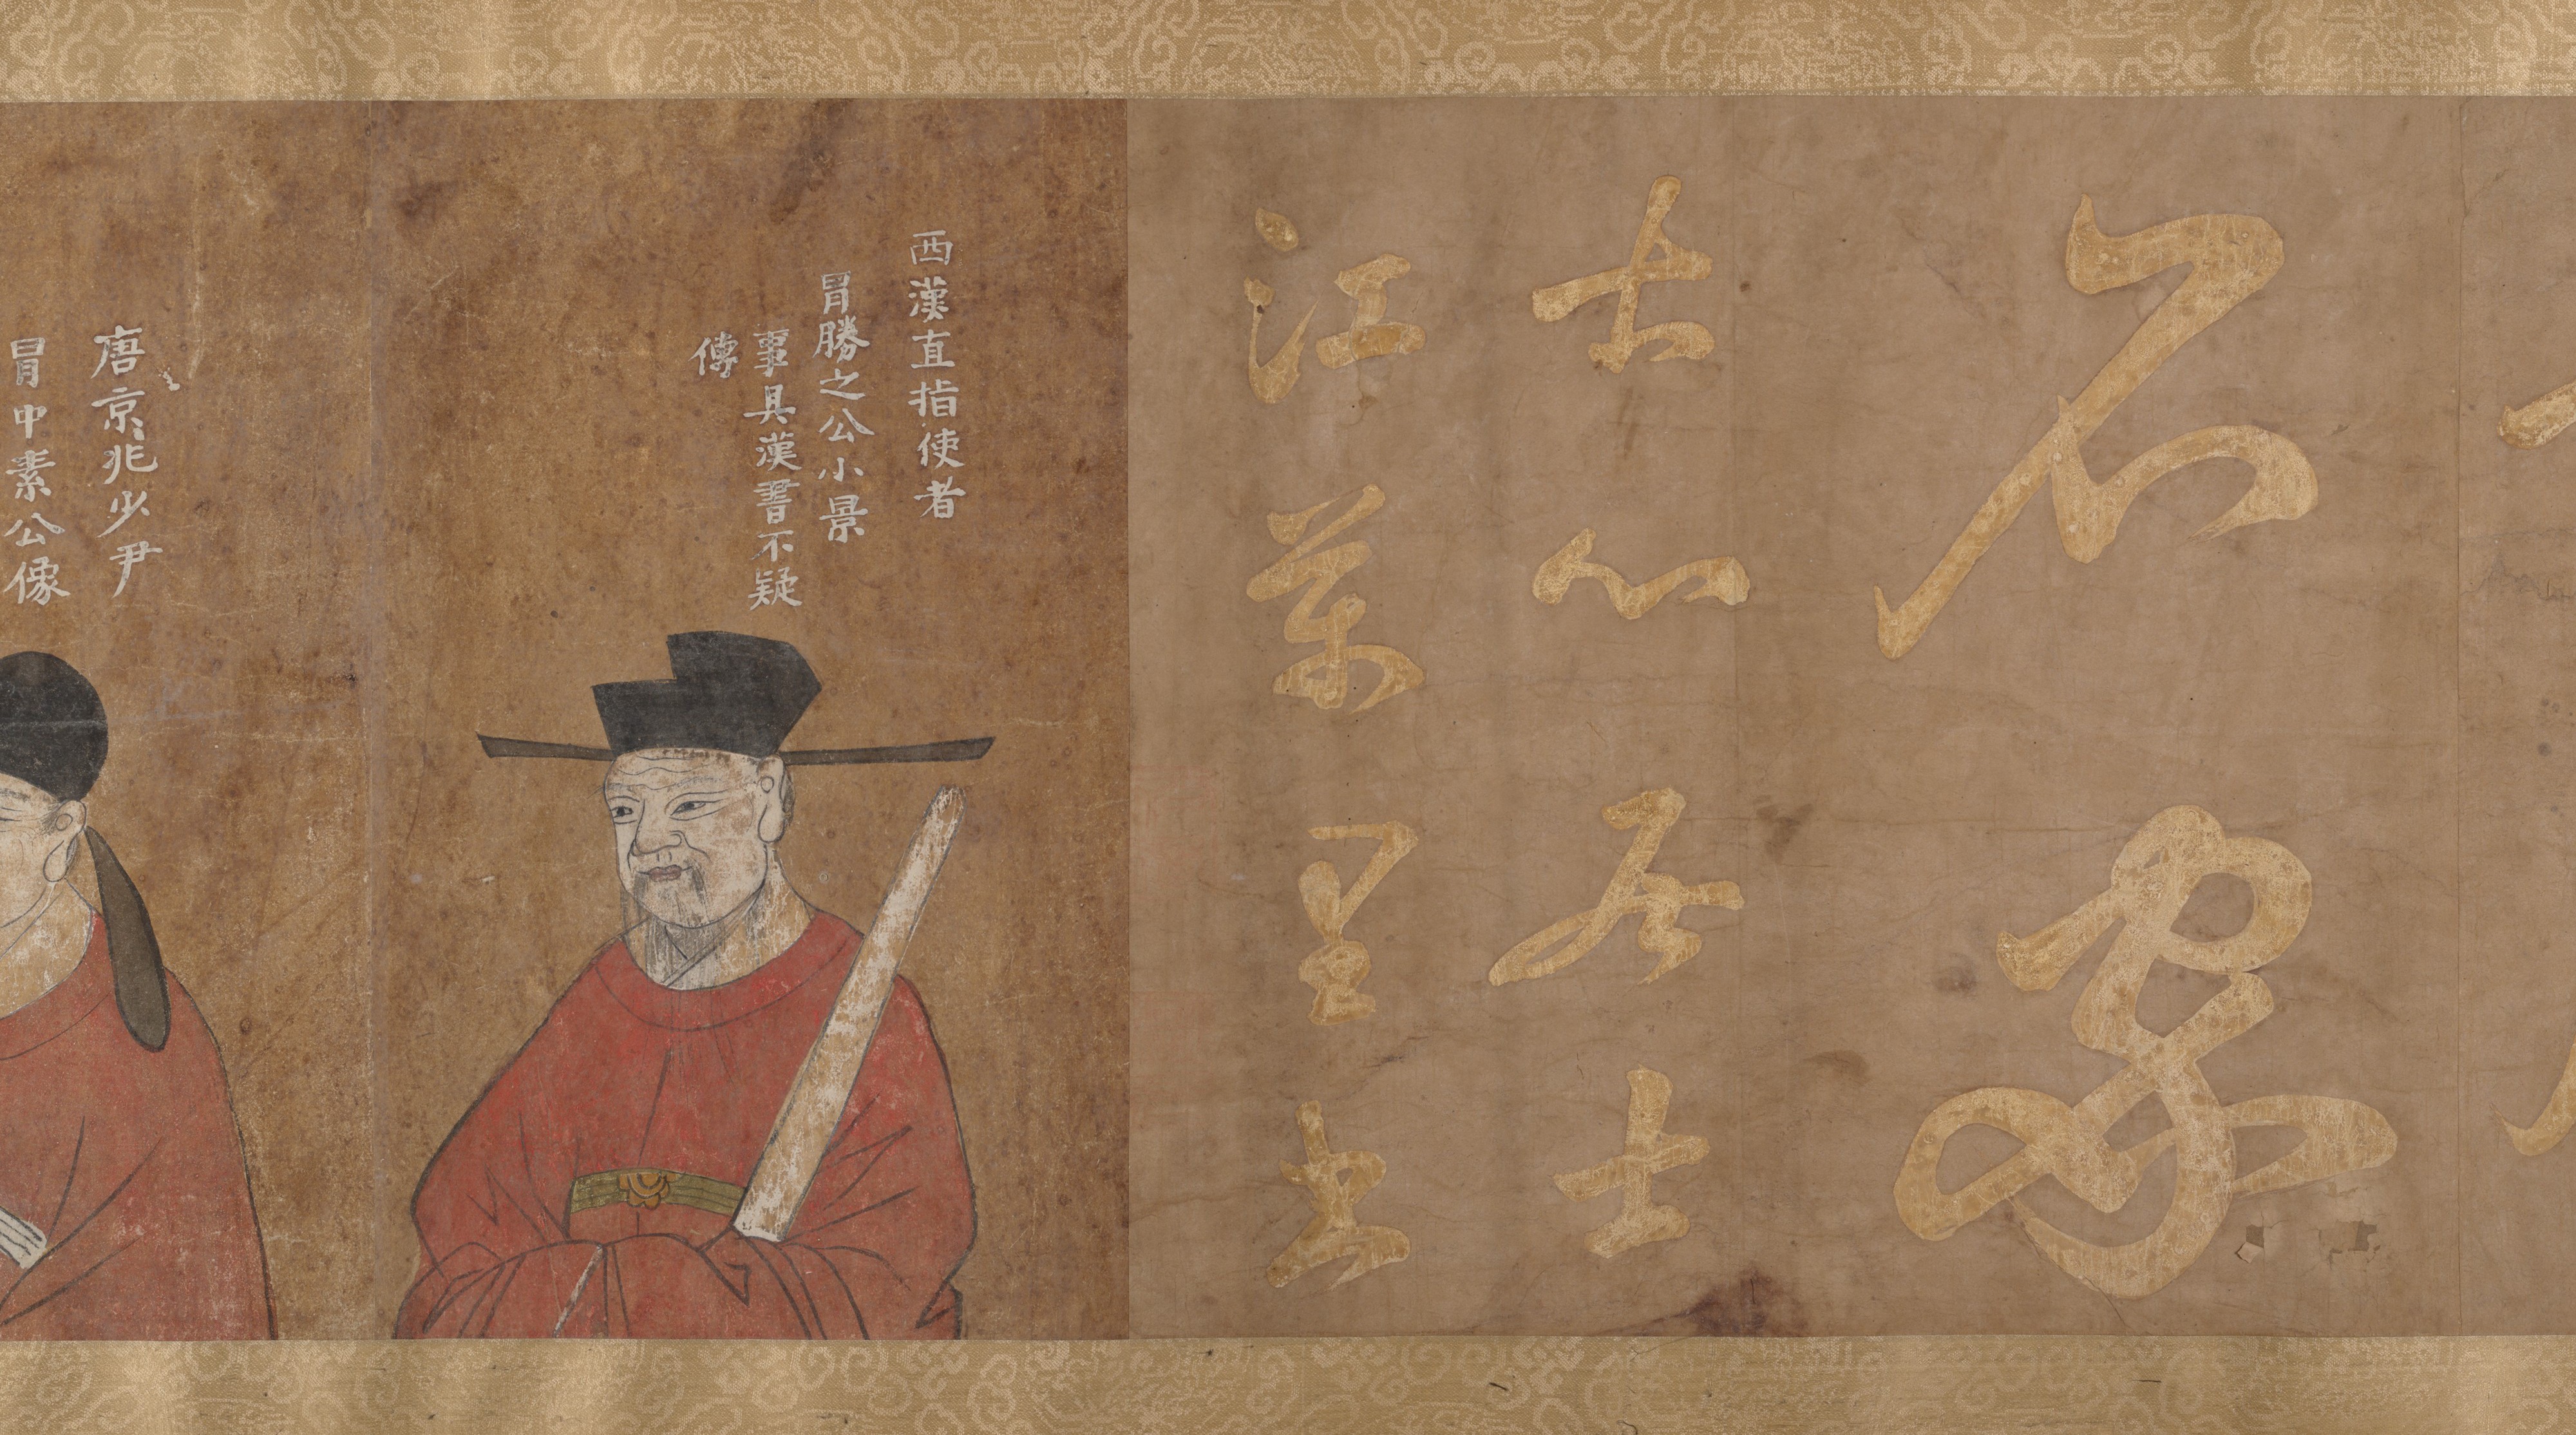 名象
古心居士
江萬里書
西漢直指使者
冐勝之公小景
事具漢書不疑
傳
唐京兆少尹
冐中素公像